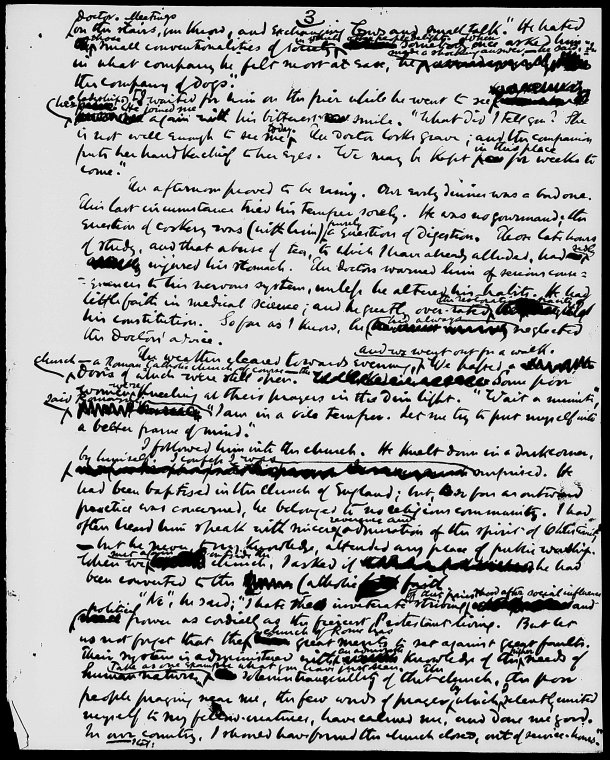 3
Doctor. Meetings
on the stairs, you know, and exchanging bows and small talk." He hated
those small conventionalities of society in which delights. Somebody once asked him,
in what company he felt most at ease, he made a shocking answer — he said, "In
the company of Dogs."
I waited for him on the pier while he went to see
He joined me again with his bitterest smile. "What did I tell you? She
is not well enough to see me today. The Doctor looks grave; and the companion
puts her handkerchief to her eyes. We may be kept in this place for weeks to
come."
The afternoon proved to be rainy. Our early dinner was a bad one.
This last circumstance tried his temper sorely. He was no gourmand; the
question of cookery was (with him) purely a question of digestion. Those late hours
of study, and that abuse of tea, to which I have already alluded, had sadly
injured his stomach. The doctors warned him of serious conse=
=quences to his nervous system, unless he altered his habits. He had
little faith in medical science; and he greatly over-rated the restorative capacity of
his constitution. So far as I know, he had always neglected
the Doctors' advice.
The weather cleared towards evening, and we went out for a walk. We passed a
church — a Roman Catholic church, of course — the
Doors of which were still open. Some poor
women were kneeling at their prayers in the dim light. "Wait a minute,"
said Romayne "I am in a vile temper. Let me try to put myself into
a better frame of mind."
I followed him into the church. He knelt down in a dark corner,
by himself. I confess I was surprised. He
had been baptised in the Church of England; but so far as outward
practice was concerned, he belonged to no religious community. I had
often heard him speak with sincere reverence and admiration of the spirit of Christianity
— but he never, to my knowledge, attended any place of public worship.
When we met again outside the church, I asked if he had
been converted to the Catholic faith
"No", he said; "I hate the inveterate striving of this priesthood after social influence and
political power as cordially as the fiercest Protestant living. But let
us not forget that the Church of Rome has great merits to set against great faults.
Their system is administered with an admirable knowledge of the higher needs of
human nature. Take as one example what you have just seen. The
solemn tranquillity of that church, the poor
people praying near me, the few words of prayer by which I silently united
myself to my fellow-creatures, have calmed me, and done me good.
In our country, I should have found the church closed, out of service-hours."